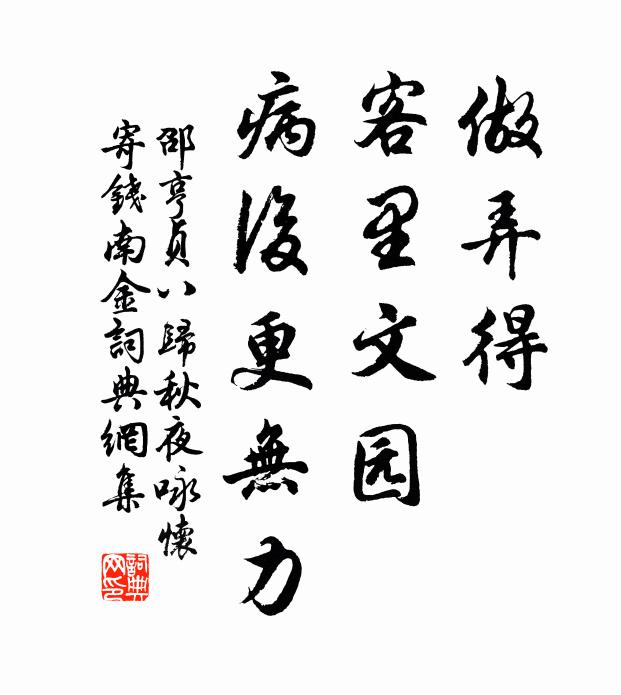 做弄得
客里文园
病後更無力
邵亨貞八歸秋夜咏懷
寄錢南金詞典網集
詞典
网印